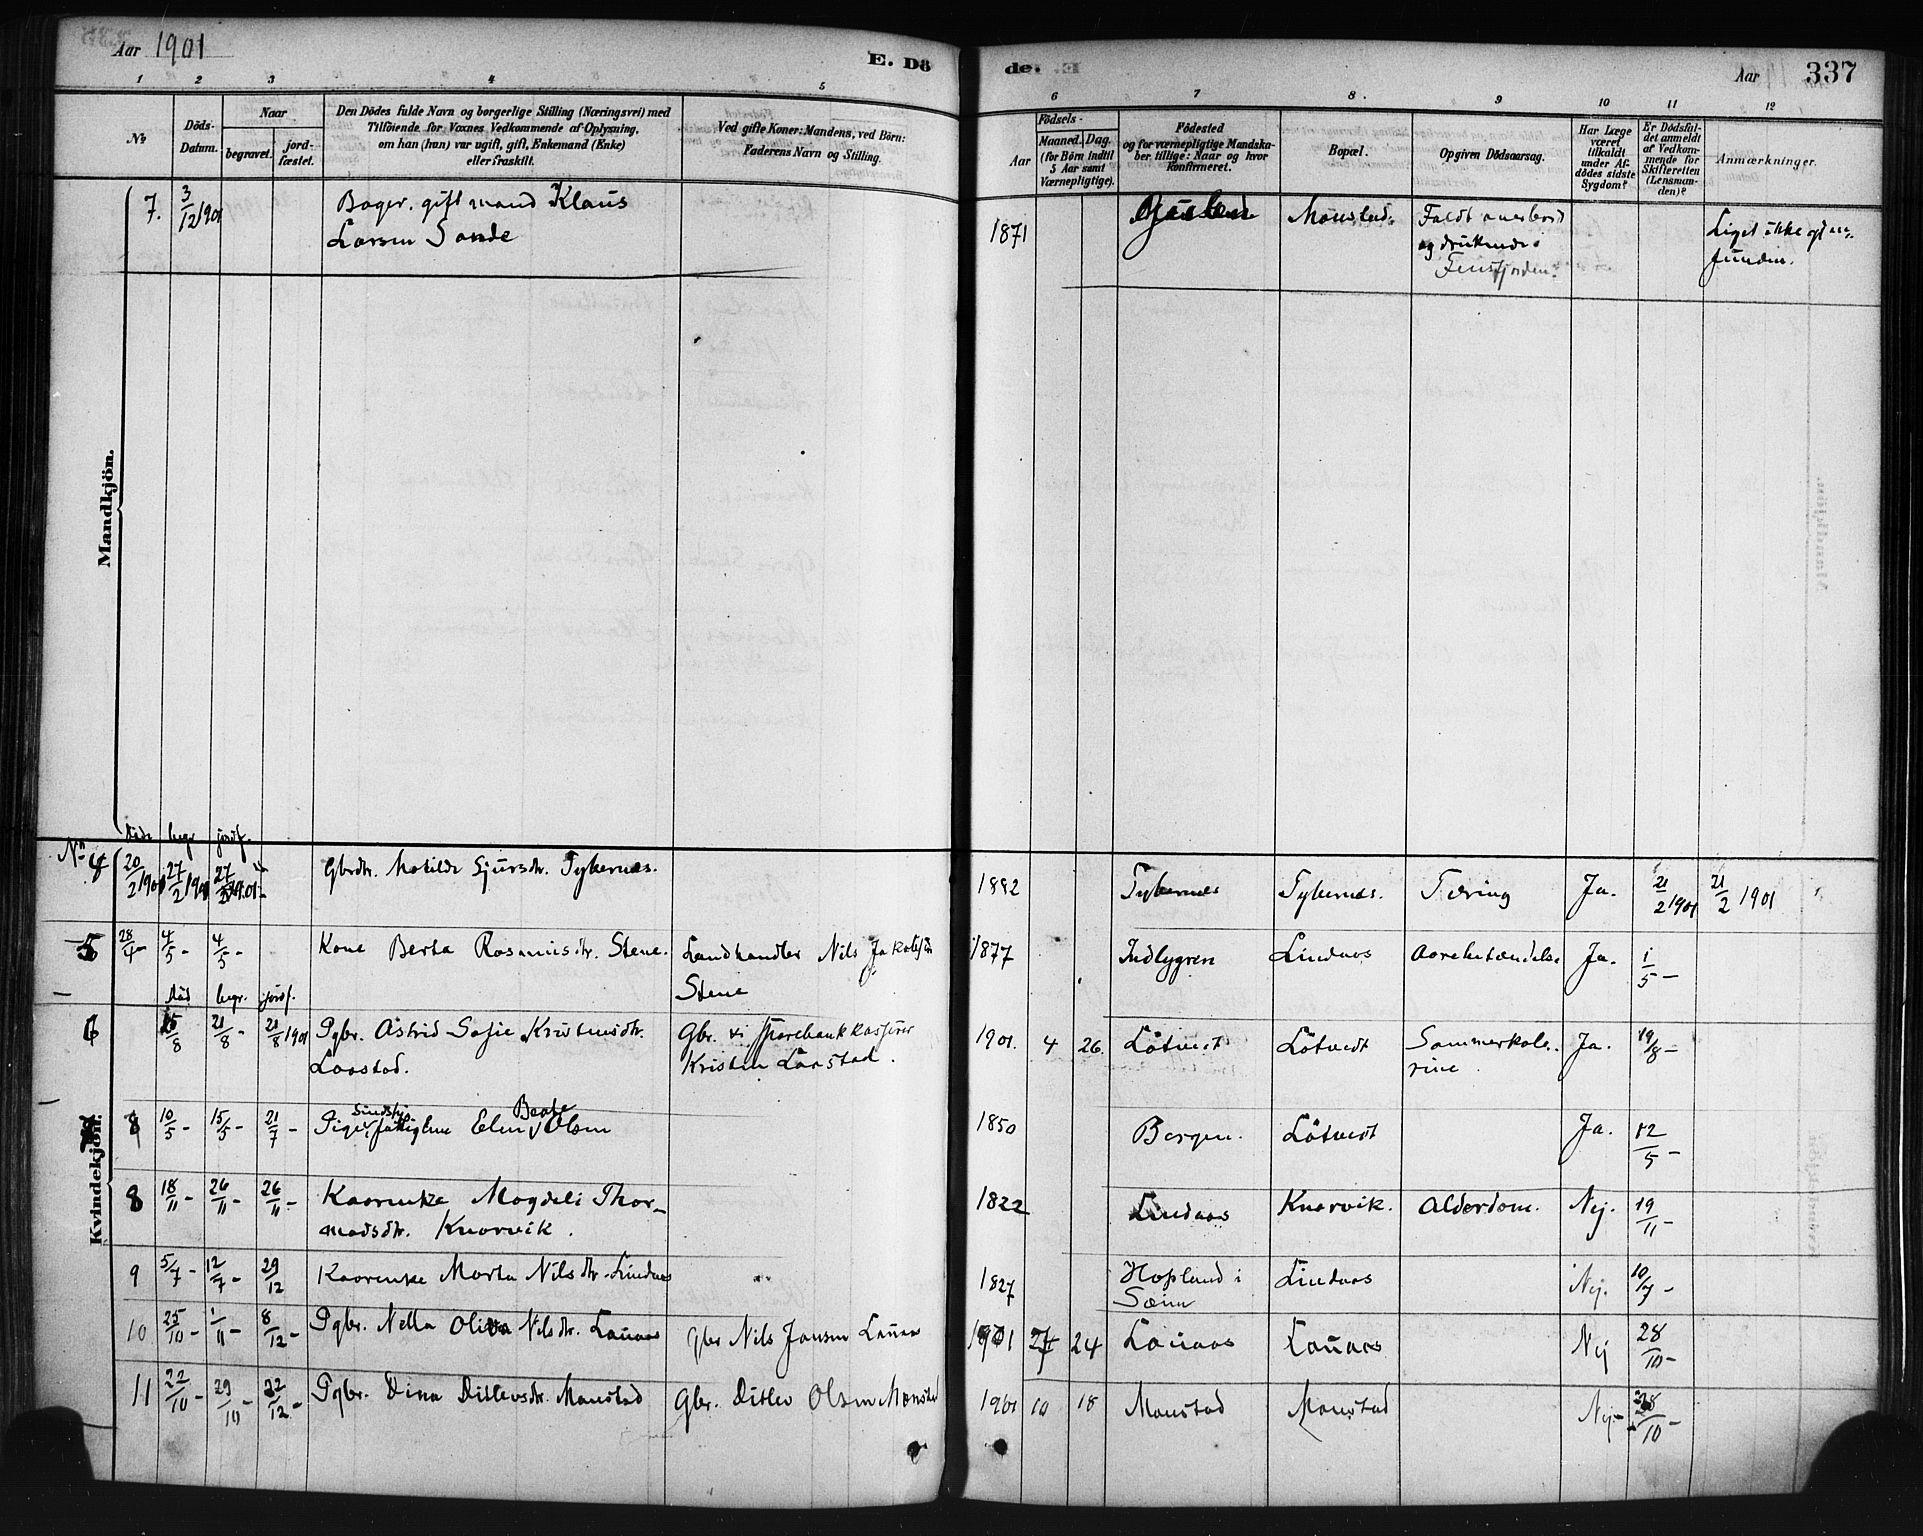 Aar 1901
E. Dö
de. E.
Aar
337
1 2 3 4 5
6 7 8. 9 10 11 12
No
Döds-
Datum.
Naar
begravet.
jord-
fæstet.
Den Dödes fulde Navn og borgerlige Stilling (Næringsvei) med
Tilföiende for Voxnes Vedkommende af Oplysning,
om han (hun) var ugift, gift, Enkemand (Enke)
eller fraskilt.
Ved gifte Koner: Mandens, ved Börn:
Faderens Navn og Stilling.
Aar
Födsels-
Maaned. Dag.
(for Börn indtil
5 Aar samt
Værnepligtige).
Födested
og for værnepligtige Mandska-
ber tillige: Naar og hvor
konfirmeret.
Bopæl.
Opgiven Dödsaarsag.
Har Læge
været
tilkaldt
under Af-
dödes sidste
Sygdom?
Er Dödsfal-
det anmeldt
af Vedkom-
mende for
Skifteretten
(Lensman-
den)?
Anmærkninger.
Mandkjön.
7. 3/12 1901 Bager. gift mand Klaus 1871 Monstad. Faldt overbord Liget ikke
Larsen Sande og druknede i funden.
Fensfjorden.
Kvindekjön.
död begr jordf.
No 4 20/2 1901 27/2 1901 27/2 1901 Gbrdtr. Matilde Sjursdtr. Tykernæs. 1882 Tykernæs Tykernæs. Tæring Ja. 21/2 1901 21/2 1901
5 28/4 - 4/5 - 4/5 - Kone Berta Rasmusdtr. Stene. Landhandler Nils Jakobsen 1877 Indlygren Lindaas Aarebetændelse Ja. 1/5 -
Stene
död begr. jordf.
6 15/8 21/8 - 21/8 1901 Pgbr. Astrid Sofie Kristensdtr. Gbr. & Sparebankkasserer 1901. 4 26. Lötvedt Lötvedt Sommerkole- Ja. 19/8 -
Laastad. Kristen Laastad. rine
8 10/5 - 15/5 - 21/7 - Pige, Elen Beate Olsen 1850 Bergen. Lötvedt Ja. 12/5 -
8 18/11 - 26/11 - 26/11 - Kaarenke Magdeli Thor- 1822 Lindaas Knarvik. Alderdom. Nej. 19/11 -
madsdtr. Knarvik.
9 5/7 - 12/7 - 29/12 Kaarenke Marta Nilsdtr. Lindaas 1827 Hopland i Lindaas Nej. 10/7 -
10 25/10 - 1/11 - 8/12 - Pgbr. Nella Oliva Nilsdtr. Lauaas Gbr Nils Jansen Lauaas 1901 24 Lauaas Lauaas Nej 28/10 -
11 22/10 - 29/10 - 22/12 - Pgbr. Dina Ditlevsdtr. Monstad Gbr. Ditlev Olsen Monstad 1901 10 18 Monstad Monstad Nej - 28/10 -